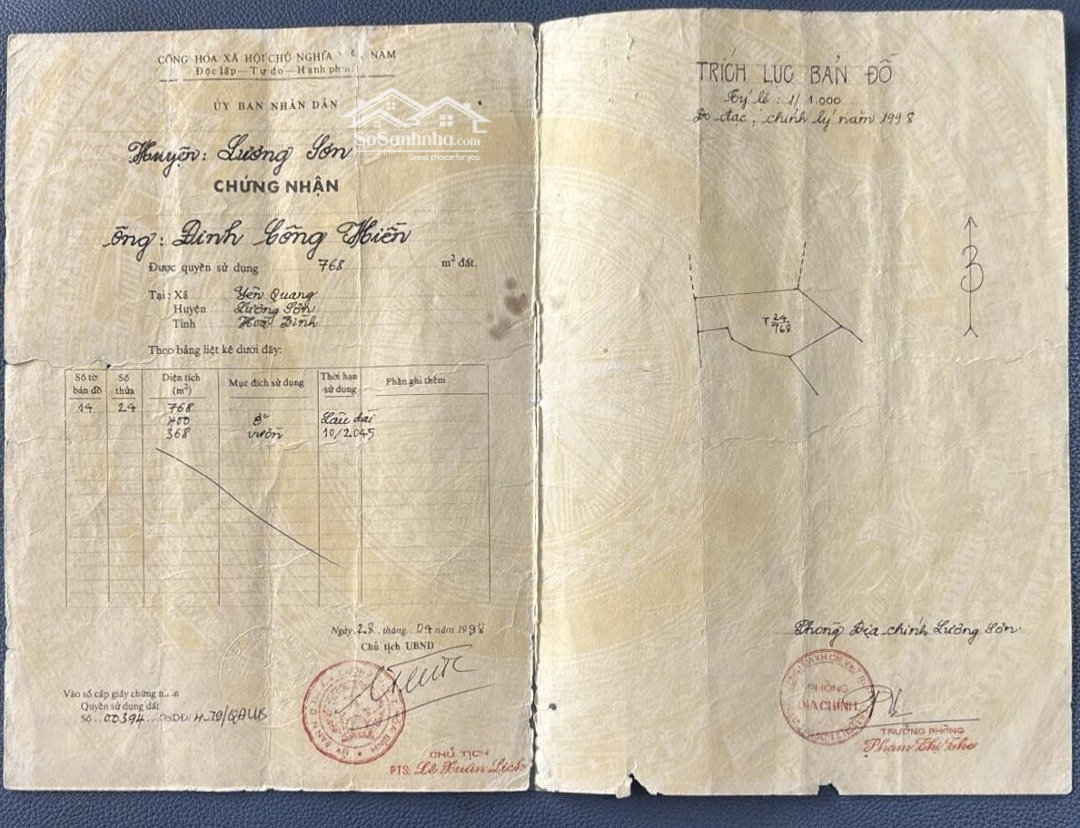 CỘNG HÒA XÃ HỘI CHỦ NGHĨA NAM
Độc lập - Tự do - Hạnh
ỦY BAN NHÂN DÂN
SoSanhnha.com
Great choice for you
Huyện: Lương Sơn
CHỨNG NHẬN
Ông: Đinh Công Hiền
Được quyền sử dụng 768 m² đất.
Tại: Xã Yên Quang
Huyện Lương Sơn
Tỉnh Hoà Bình
Theo bảng liệt kê dưới đây:
Số tờ bản đồ Số thửa Diện tích (m²) Mục đích sử dụng Thời hạn sử dụng Phần ghi thêm
14 24 768
400 ở Lâu dài
368 vườn 10/2.045
Ngày 28 tháng 04 năm 1998
Chủ tịch UBND
Vào sổ cấp giấy chứng
Quyền sử dụng đất
Số 00394
CHỦ TỊCH
PTS: Lê Xuân
TRÍCH LỤC BẢN ĐỒ
Tỷ lệ: 1/1.000
Đo đạc, chỉnh lý năm 1998
T 24/768
Phòng Địa chính Lương Sơn
PHÒNG
ĐỊA CHÍNH
TRƯỞNG PHÒNG
Phạm Thị Thu